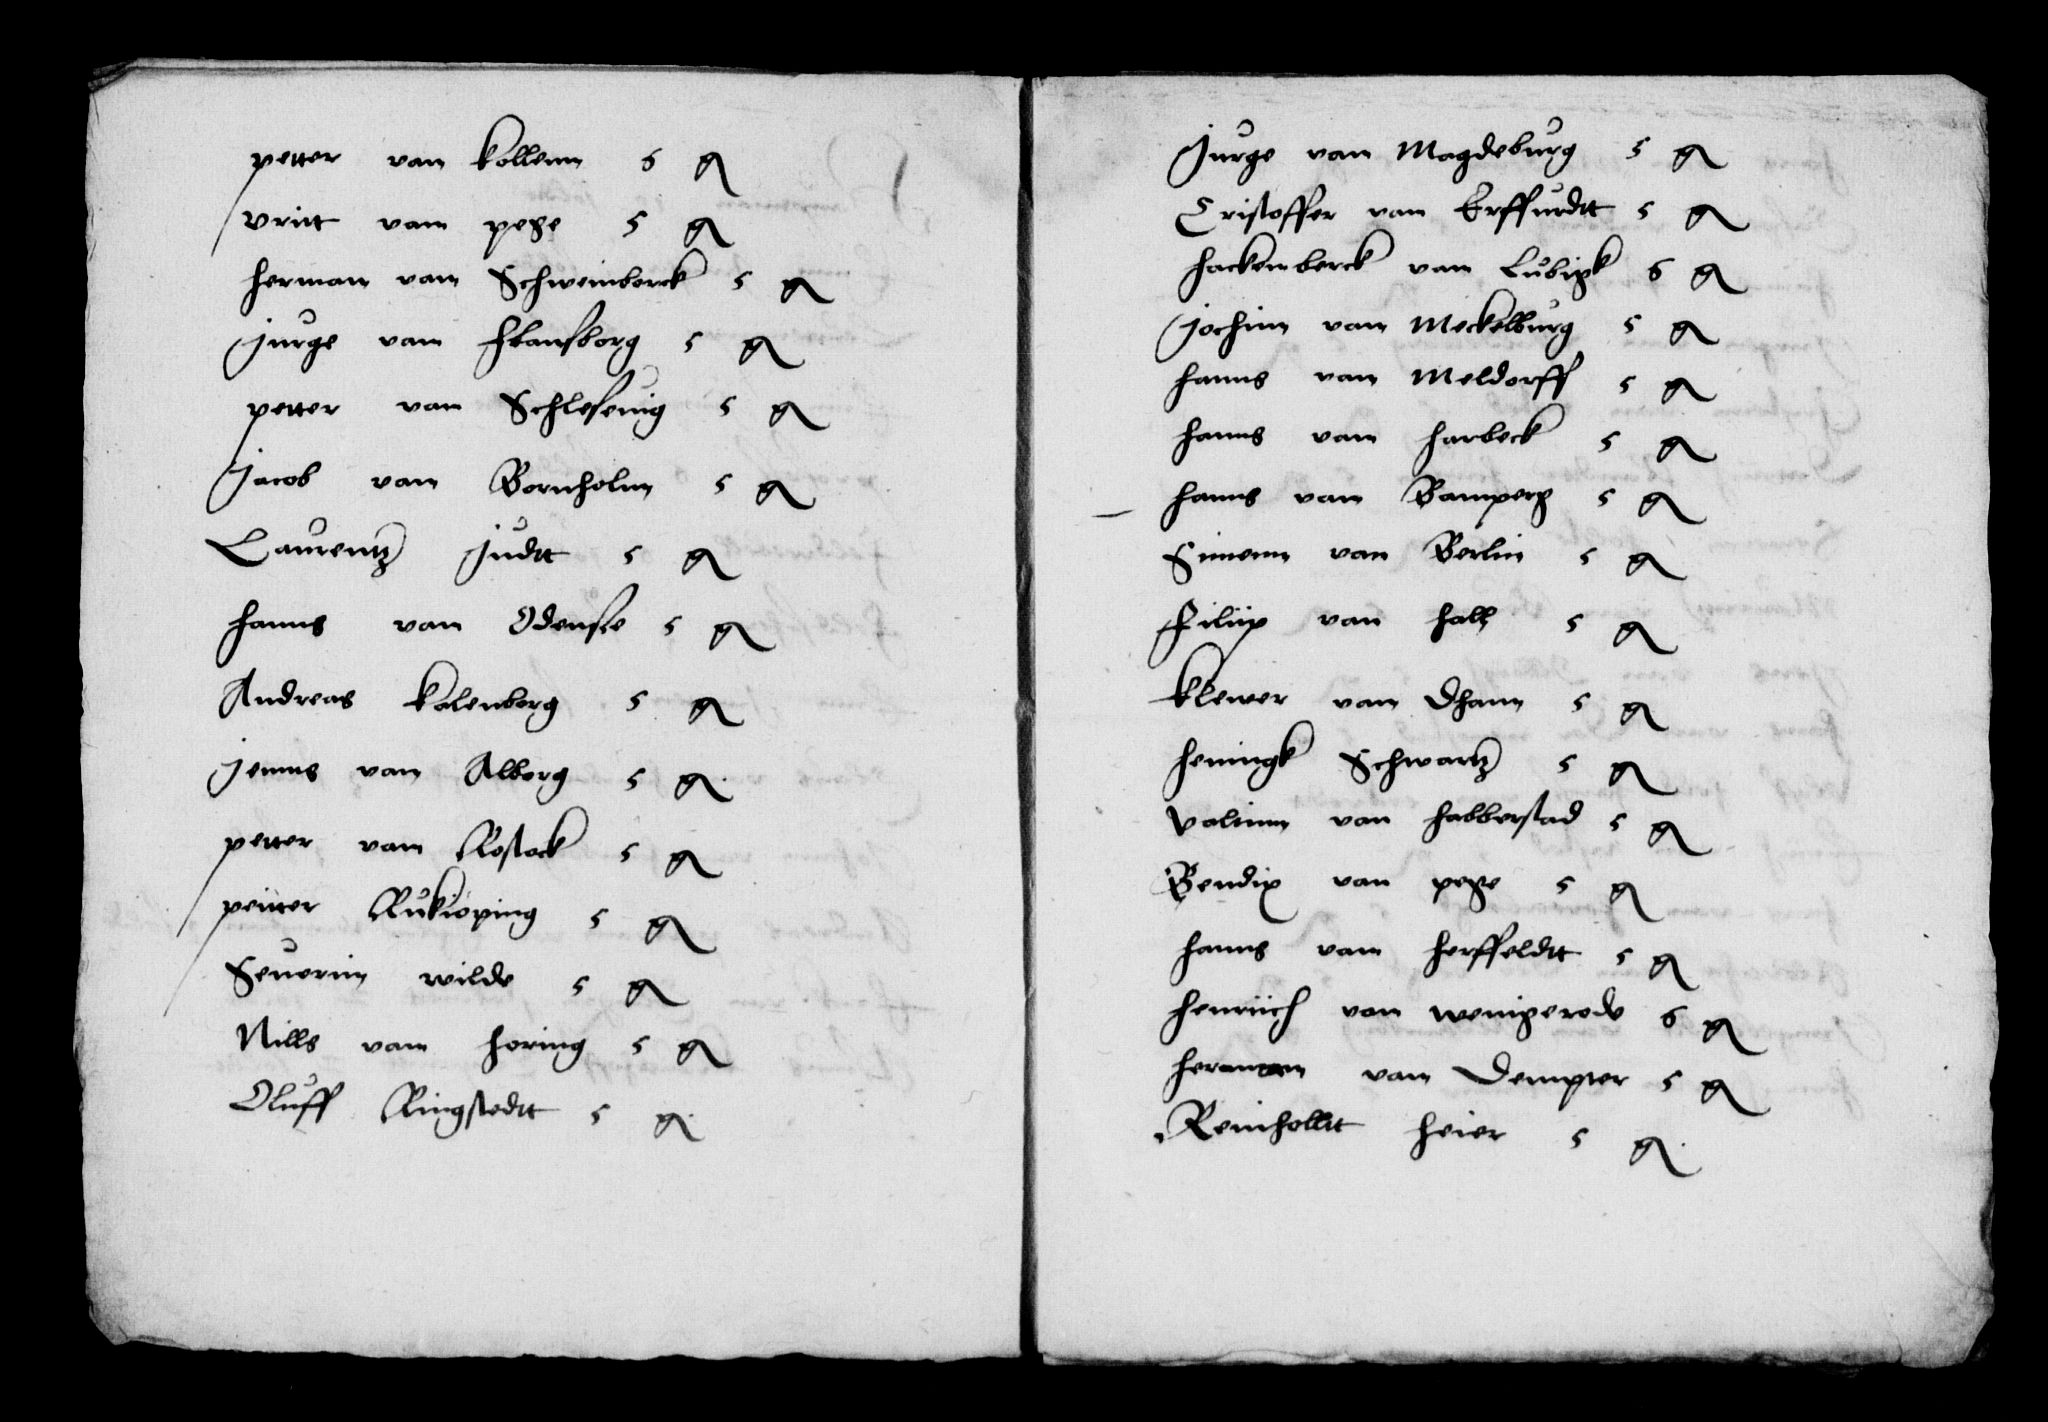 petter van kollenn 5 g
vritt vam peze 5 g
herman vam Schweinborck 5 g
Jurge vam Flansborg 5 g
petter van Schleswig 5 g
Jacob vam Bornholm 5 g
Laurentz Judtt 5 g
hanns van Odensse 5 g
Andreas kalenborg 5 g
Jenns van Alborg 5 g
petter vam Rostock 5 g
peitter Nukioping 5 g
Seuerin wilde 5 g
Nills vam horing 5 g
Oluff Ringstedtt 5 g
Jurge van Magdeburg 5 g
Cristoffer van Erffurdtt 5 g
hackemberck van Lubigk 6 g
Jochim vam Meckelburg 5 g
hanns van Meldorff 5 g
hanns vam harbeck 5 g
hanns vam Bamperg 5 g
Simenn van Berlin 5 g
Filiip van hall 5 g
klewer vam Dhann 5 g
heningk Schwartz 5 g
valtinn van halberstad 5 g
Bendix van peze 5 g
hanns vam herffeldtt 5 g
henriich van wenigerode 6 g
herman vam Dempter 5 g
Reinholltt heier 5 g